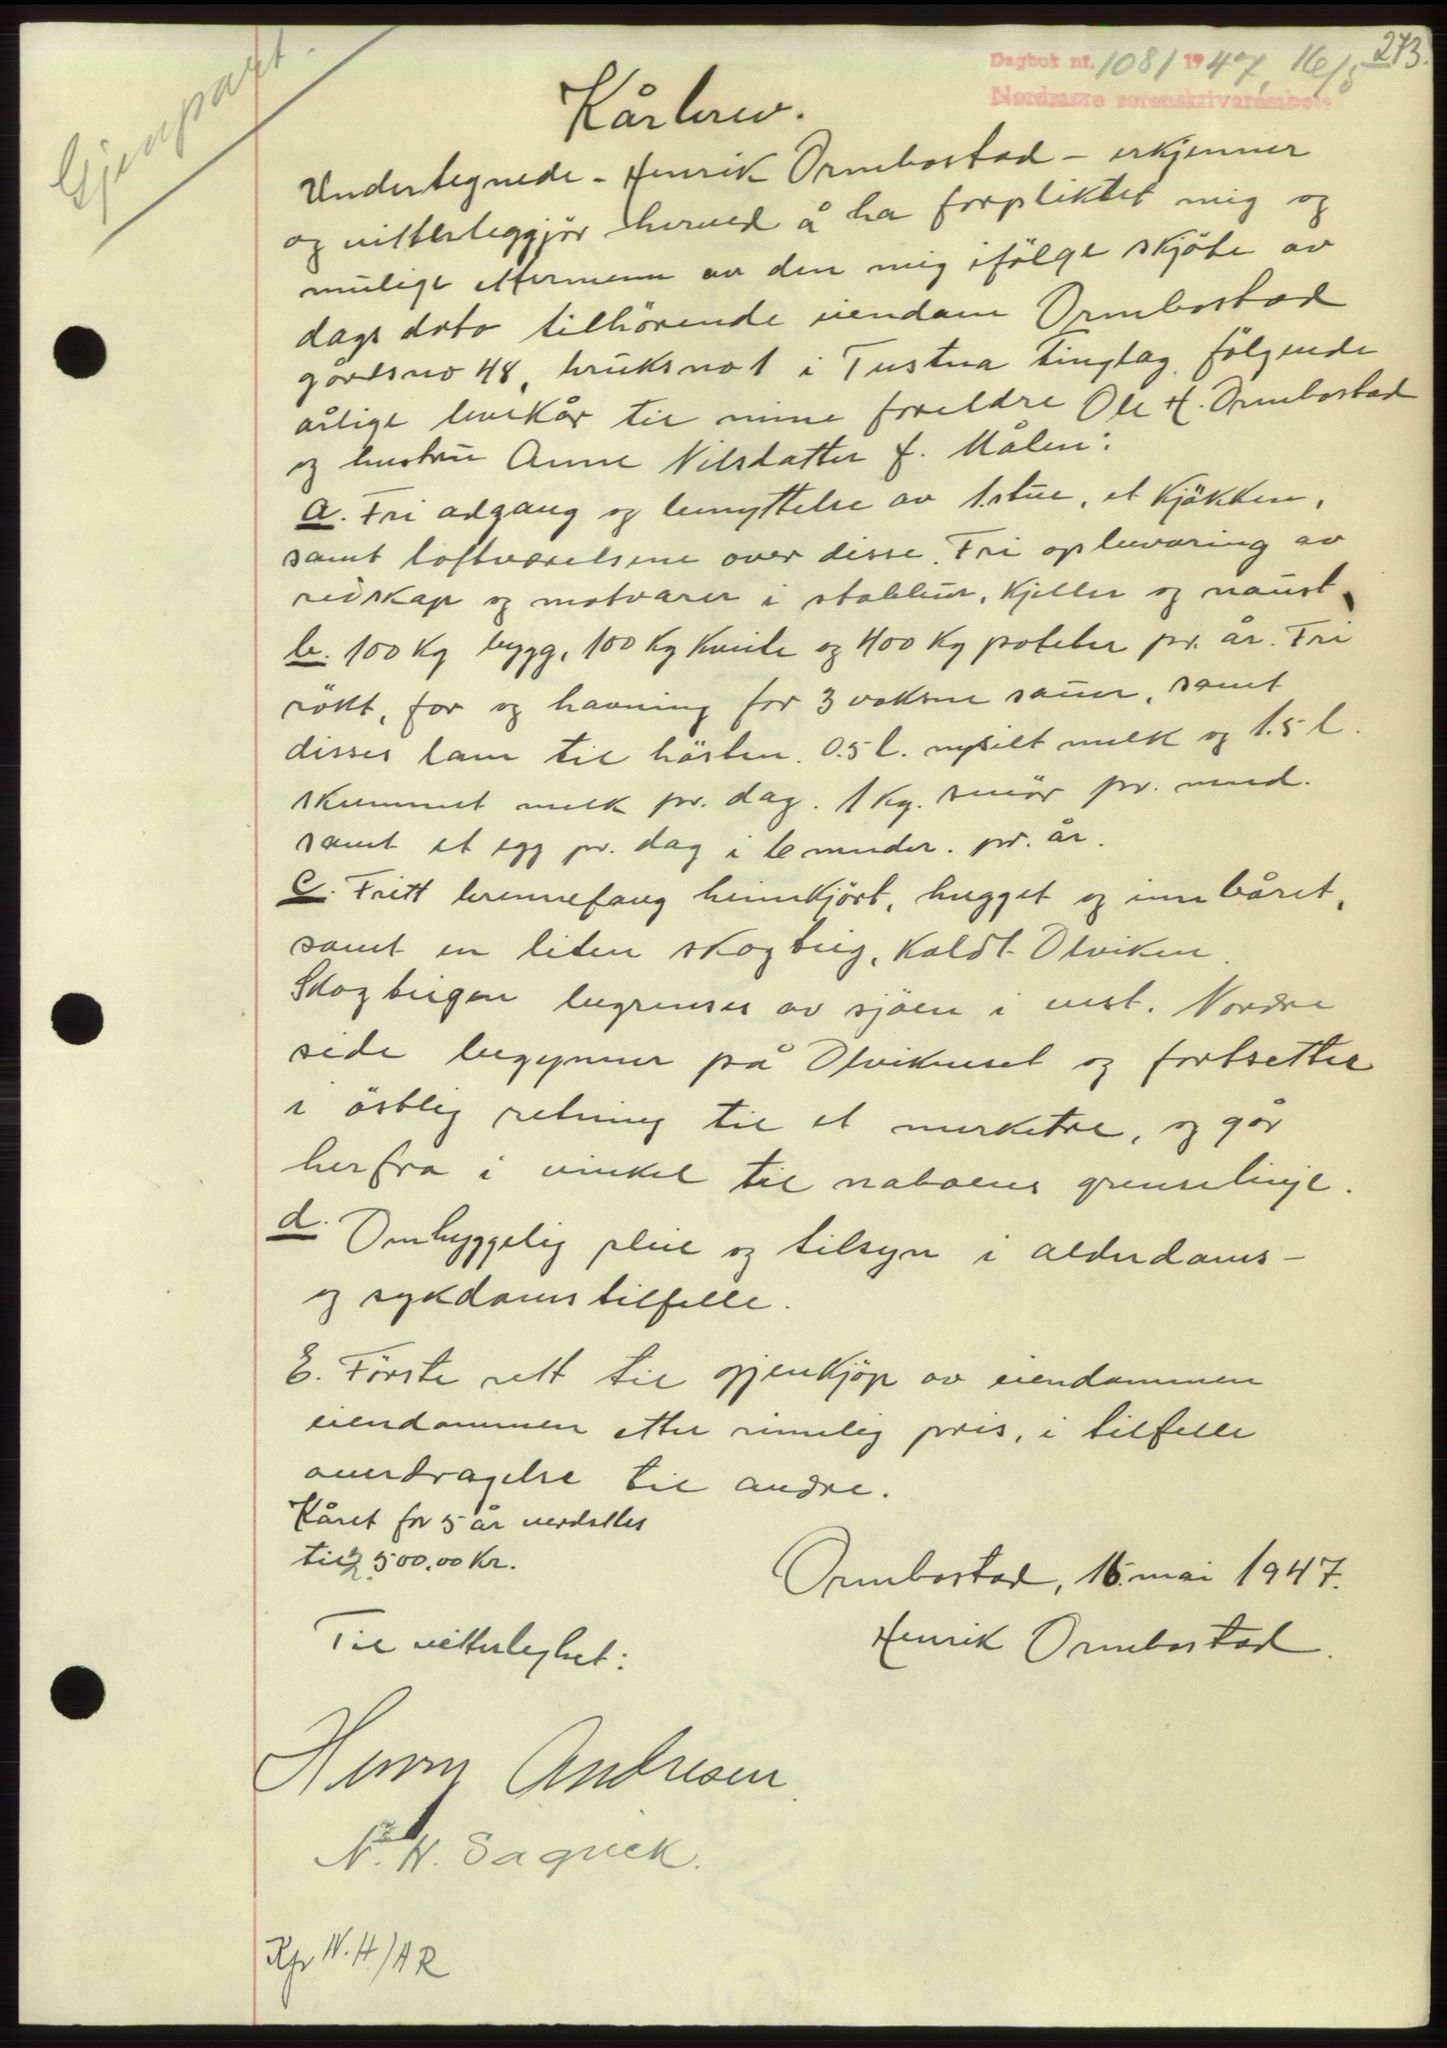 273.
Dagbok nr. 1081 1947, 16/5
Nordmøre sorenskrivarembete
Gjenpart.
Kårbrev.
Undertegnede - Henrik Ormbostad - erkjenner
og vitterleggjör herved å ha forpliktet mig og
mulige ettermenn av den mig ifölge skjöte av
dags dato tilhörende eiendom Ormbostad
gårdsno 48, bruksno 1 i Tustna Tinglag, fölgende
årlige levekår til mine foreldre Ole H. Ormbostad
og hustru Anne Nilsdatter f. Målen:
a. Fri adgang og benyttelse av 1. stue, et kjökken,
samt loftværelsene over disse. Fri opbevaring av
redskap og matvarer i stabbur, kjeller og naust.
b. 100 Kg bygg, 100 Kg kveite og 400 Kg poteter pr. år. Fri
rökt, for og havning for 3 voksne sauer, samt
disses lam til hösten. 0.5 l. nysilt melk og 1.5 l.
skummet melk pr. dag. 1 Kg. smör pr. mnd.
samt et egg pr. dag i 6 mnder. pr. år.
c. Fritt brennefang heimkjört, hugget og innbåret,
samt en liten skogteig, kaldt Olviken.
Skogteigen begrenses av sjöen i vest. Nordre
side begynner på Olvikneset og fortsetter
i östlig retning til et merketre, og går
herfra i vinkel til naboens grenselinje.
d. Omhyggelig pleie og tilsyn i alderdoms-
og sykdomstilfelle.
E. Förste rett til gjenkjöp av eiendommen
eiendommen etter rimelig pris, i tilfelle
overdragelse til andre.
Kåret for 5 år verdsettes
til 2500.00 Kr.
Ormbostad, 15. mai 1947.
Henrik Ormbostad.
Til vitterlighet:
Andresen.
N. H. Sagvick.
N. H/AR